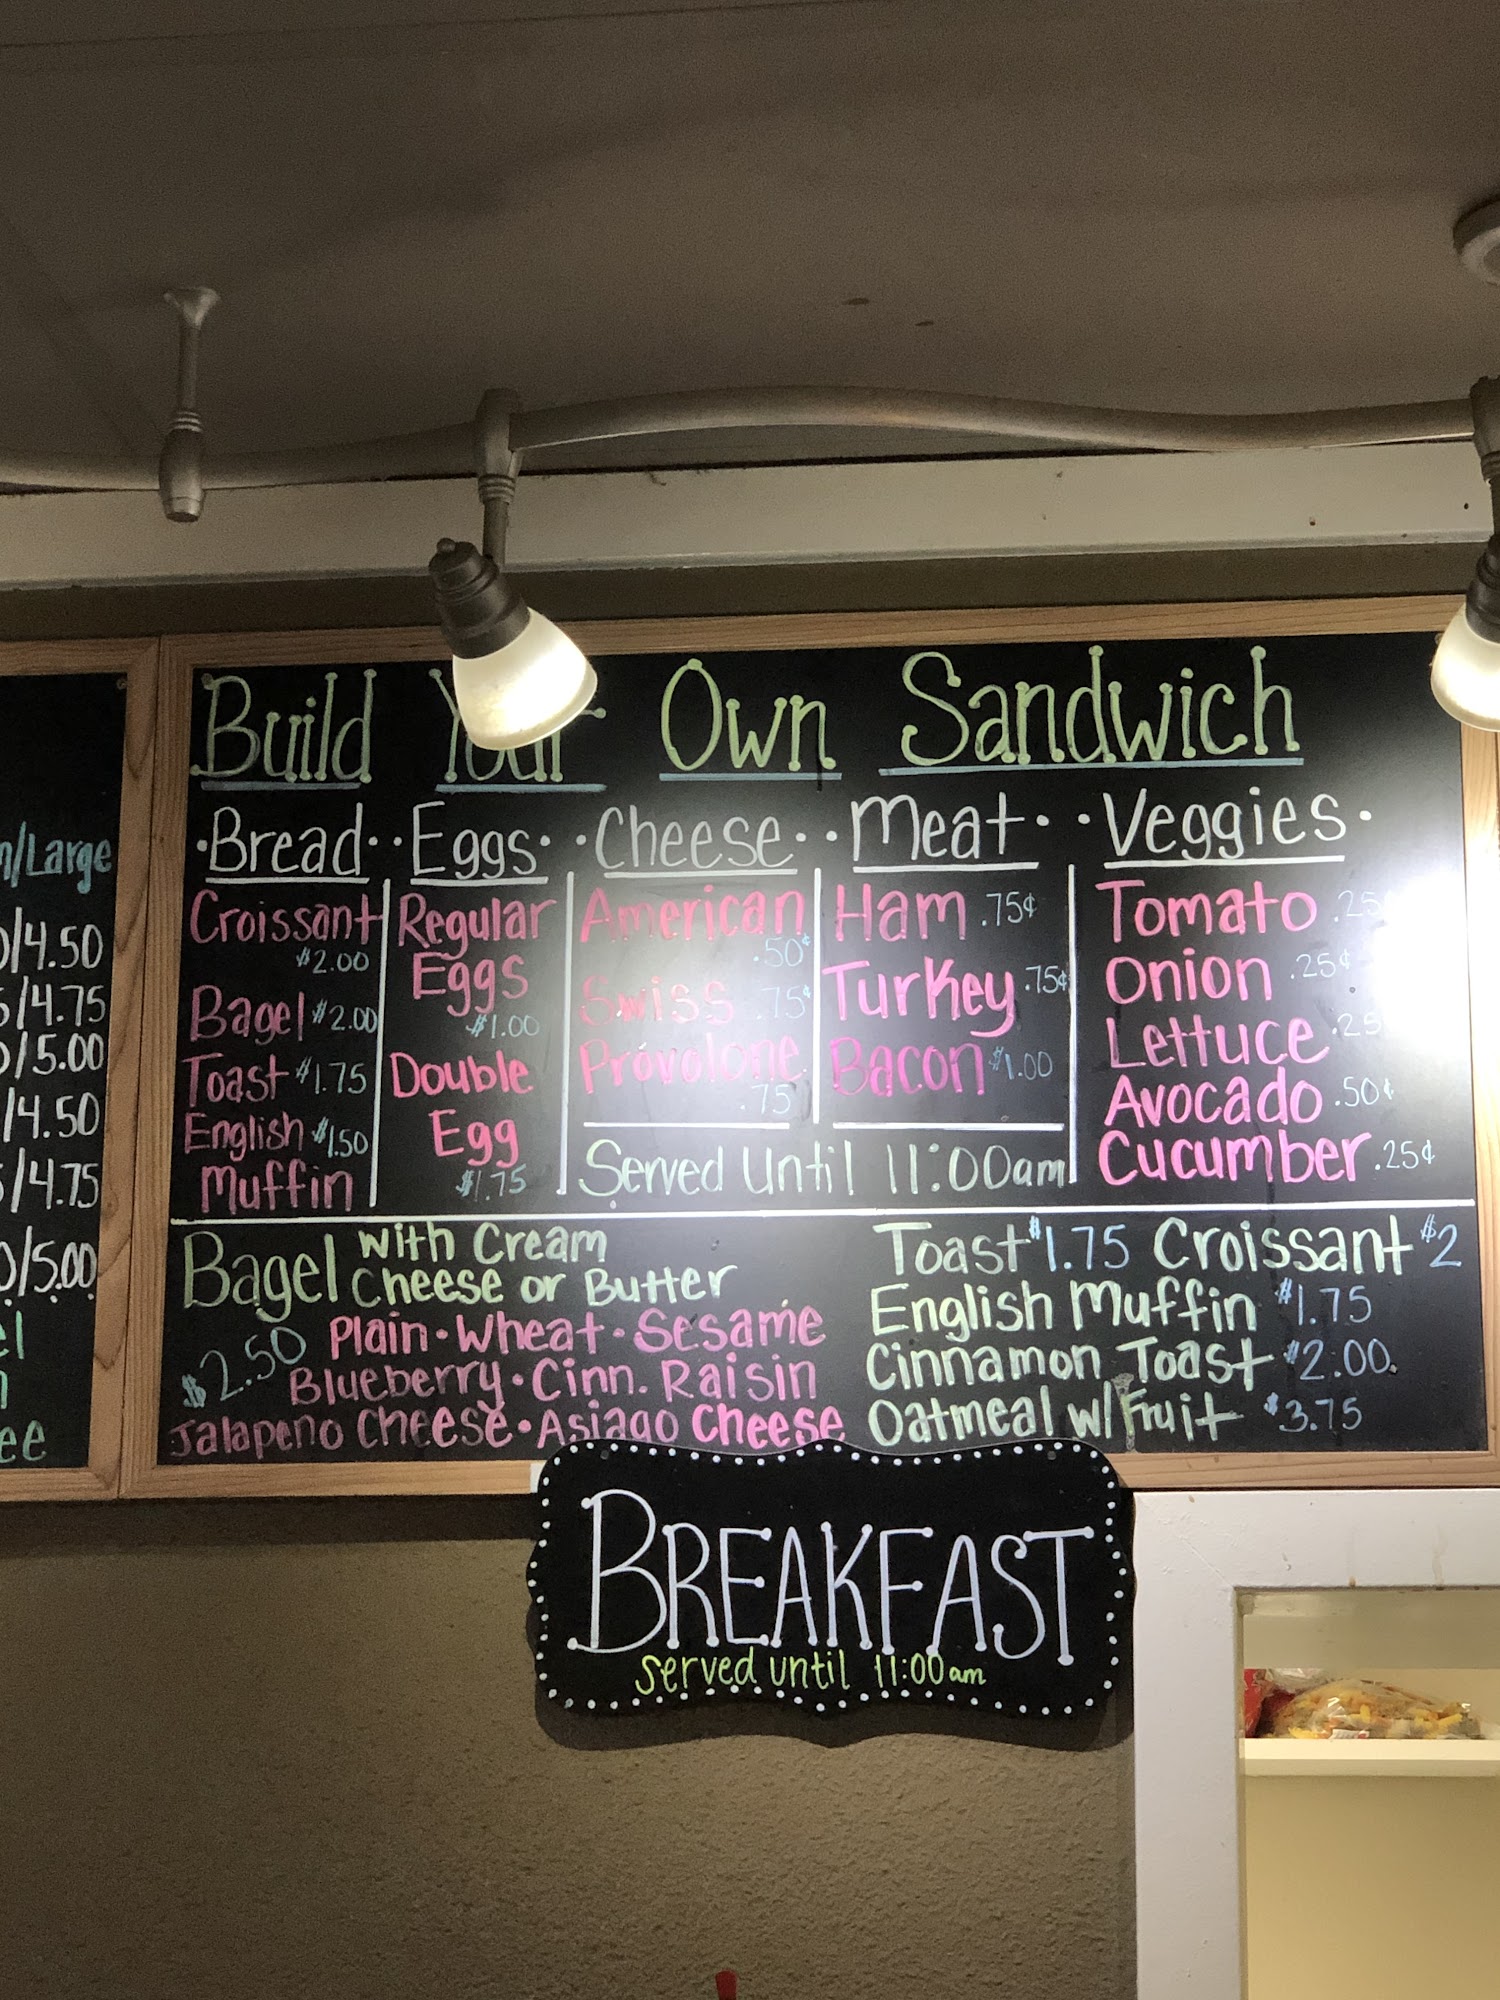 Build Your Own Sandwich
·Bread·
Croissant
$2.00
Bagel $2.00
Toast $1.75
English $1.50
Muffin
·Eggs·
Regular
Eggs
$1.00
Double
Egg
$1.75
·Cheese·
American
.50¢
Swiss .75¢
Provolone
.75
·Meat·
Ham .75¢
Turkey .75¢
Bacon $1.00
·Veggies·
Tomato .25
Onion .25¢
Lettuce .25
Avocado .50¢
Cucumber .25¢
Served Until 11:00am
Bagel with Cream
Cheese or Butter
$2.50 Plain·Wheat·Sesame
Blueberry·Cinn. Raisin
Jalapeno Cheese·Asiago Cheese
Toast $1.75 Croissant $2
English Muffin $1.75
Cinnamon Toast $2.00
Oatmeal w/Fruit $3.75
BREAKFAST
served until 11:00am
/Large
/4.50
/4.75
/5.00
/4.50
/4.75
/5.00